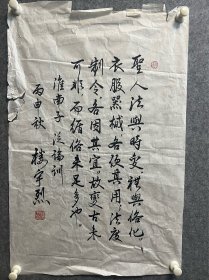 聖人法與時变禮與俗化
衣服器械各便其用法度
制令各因其宜故變古未
可非而循俗未足多也
淮南子 氾論訓
丙申秋 楼宇烈